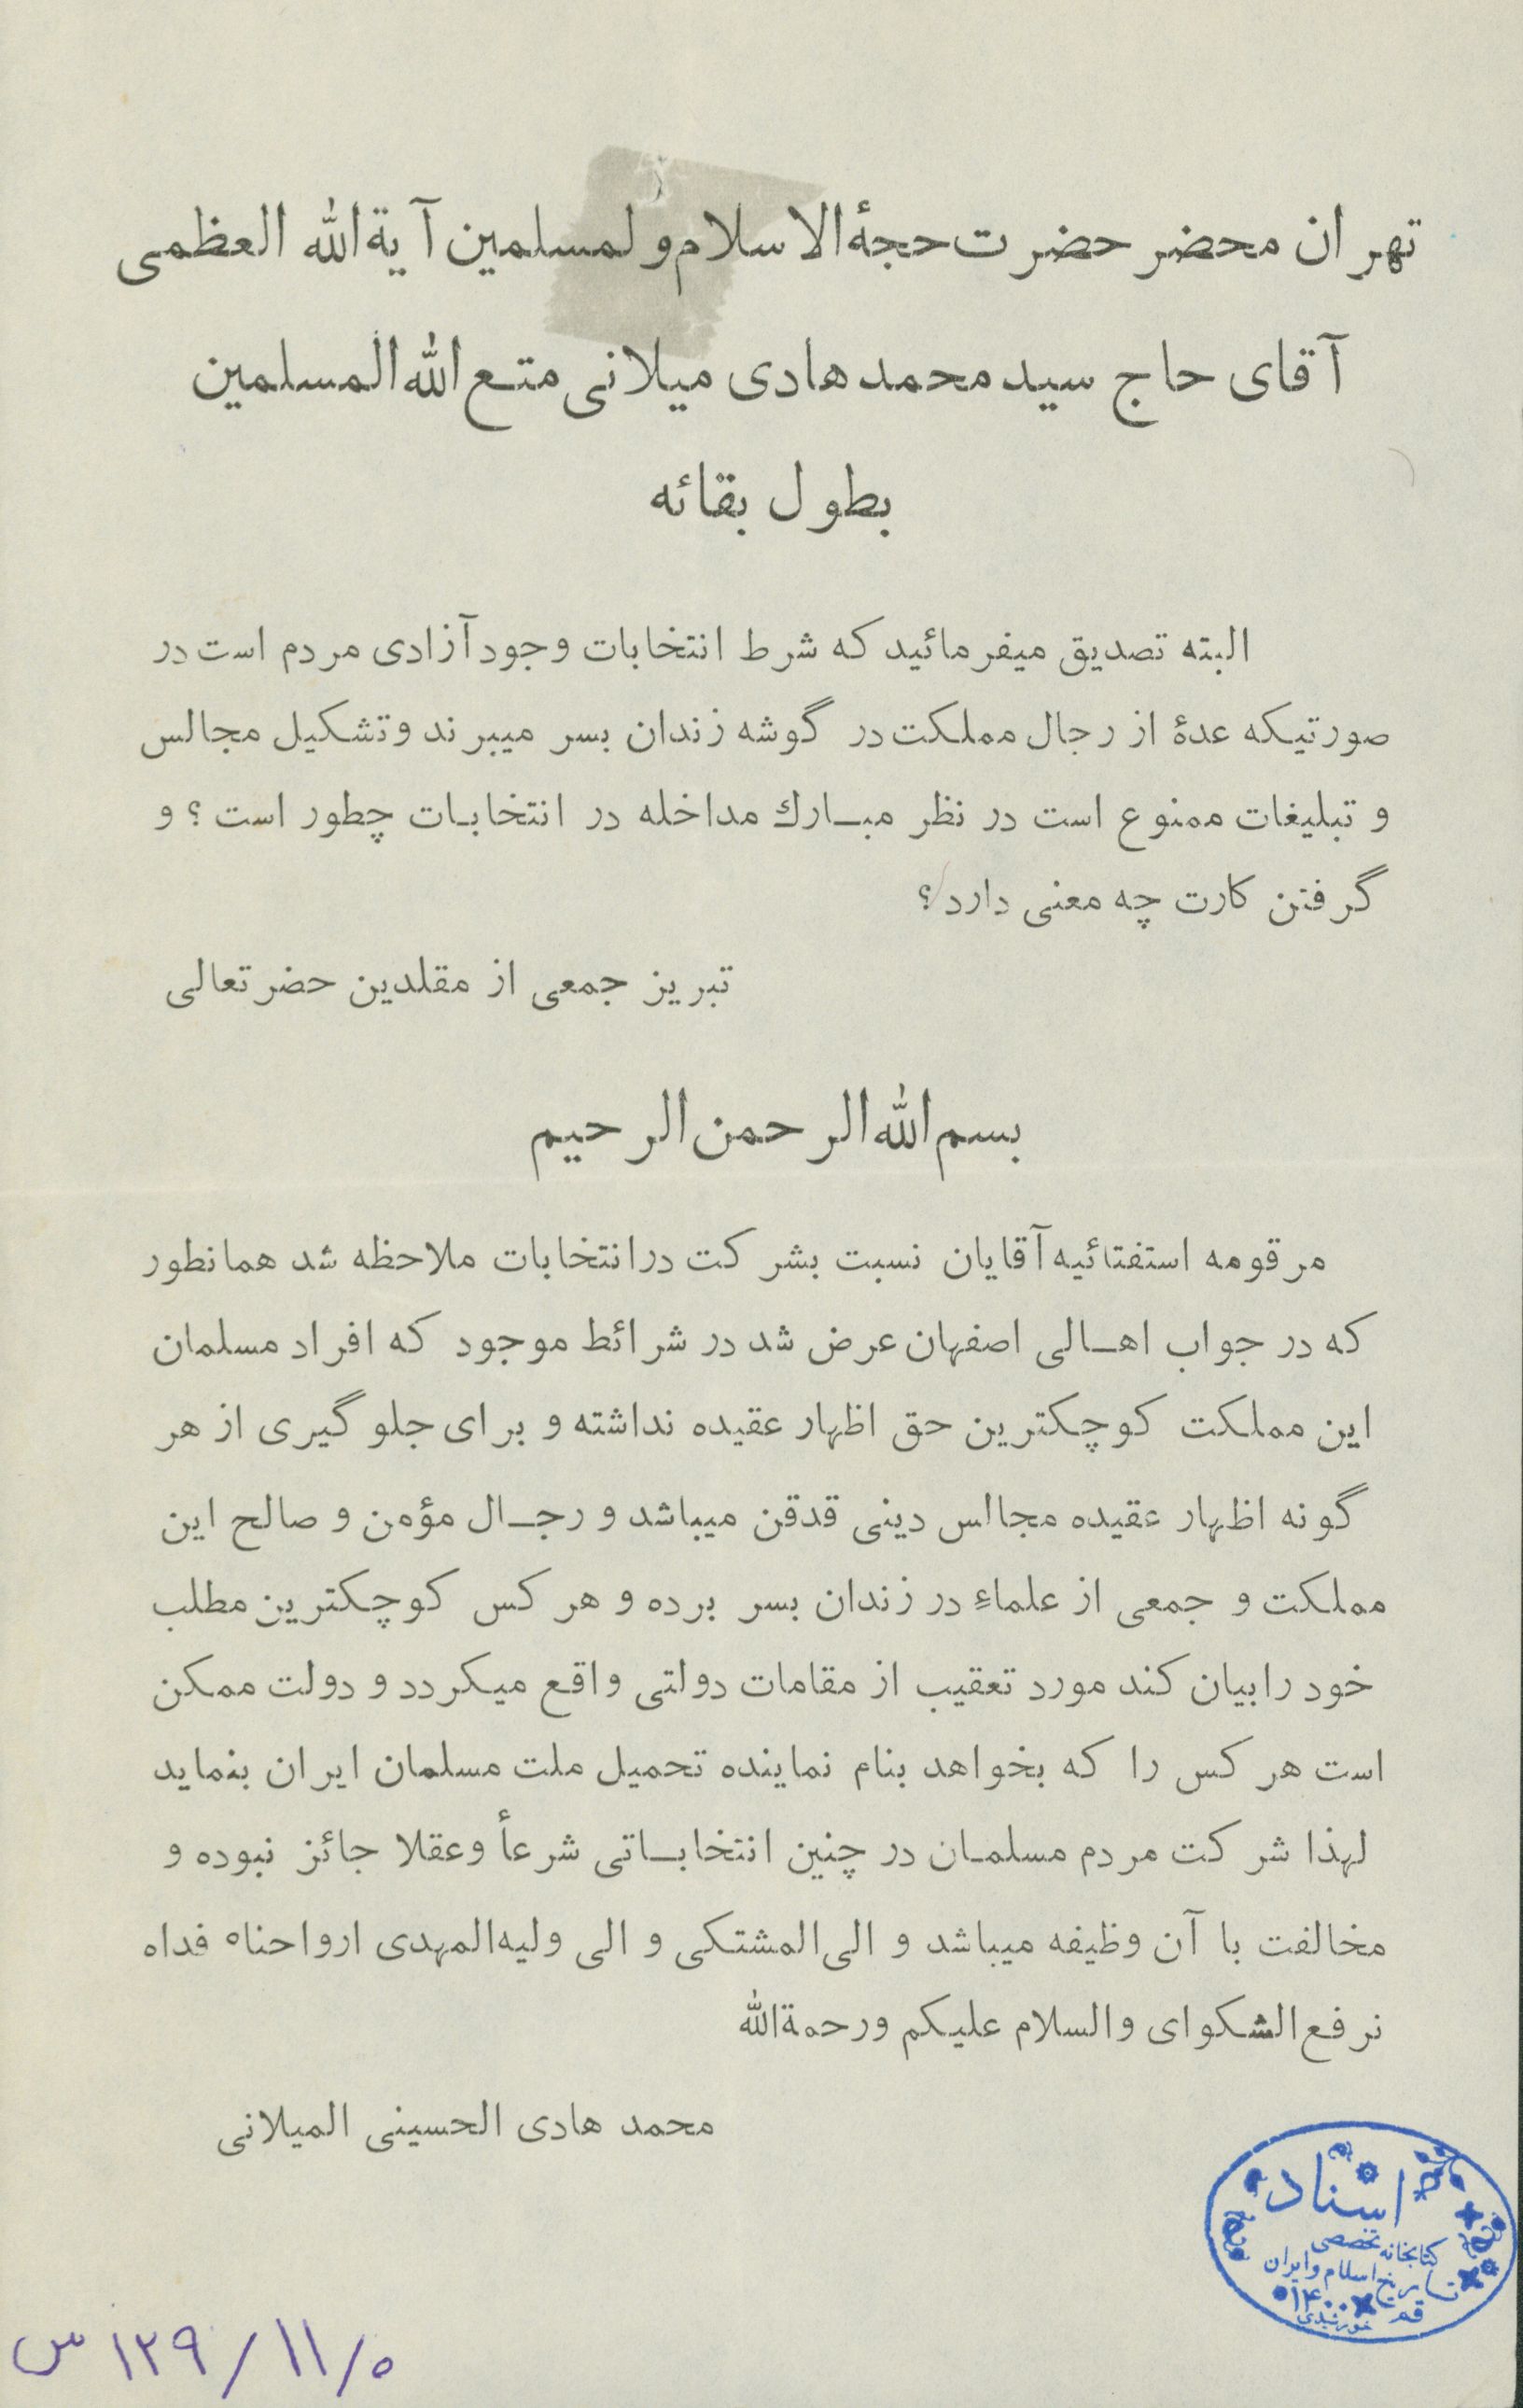 تهران محضر حضرت حجةالاسلام ولمسلمین آیةالله العظمی
آقای حاج سید محمد هادی میلانی متع الله المسلمین
بطول بقائه
البته تصدیق میفرمائید که شرط انتخابات وجود آزادی مردم است در
صورتیکه عدهٔ از رجال مملکت در گوشه زندان بسر میبرند و تشکیل مجالس
و تبلیغات ممنوع است در نظر مبارك مداخله در انتخابات چطور است ؟ و
گرفتن کارت چه معنی دارد؟
تبریز جمعی از مقلدین حضرتعالی
بسم الله الرحمن الرحیم
مرقومه استفتائیه آقایان نسبت بشرکت در انتخابات ملاحظه شد همانطور
که در جواب اهالی اصفهان عرض شد در شرائط موجود که افراد مسلمان
این مملکت کوچکترین حق اظهار عقیده نداشته و برای جلوگیری از هر
گونه اظهار عقیده مجالس دینی قدقن میباشد و رجال مؤمن و صالح این
مملکت و جمعی از علماءِ در زندان بسر برده و هر کس کوچکترین مطلب
خود را بیان کند مورد تعقیب از مقامات دولتی واقع میکردد و دولت ممکن
است هر کس را که بخواهد بنام نماینده تحمیل ملت مسلمان ایران بنماید
لهذا شرکت مردم مسلمان در چنین انتخاباتی شرعأ وعقلا جائز نبوده و
مخالفت با آن وظیفه میباشد و الی المشتکی و الی ولیه المهدی ارواحناه فداه
نرفع الشکوای والسلام علیکم ورحمةالله
محمد هادی الحسینی المیلانی
اسناد
کتابخانه تخصصی
تاریخ اسلام و ایران
قم
۱۴۰۰
خورشیدی
۱۲۹/۱۱/۵ س